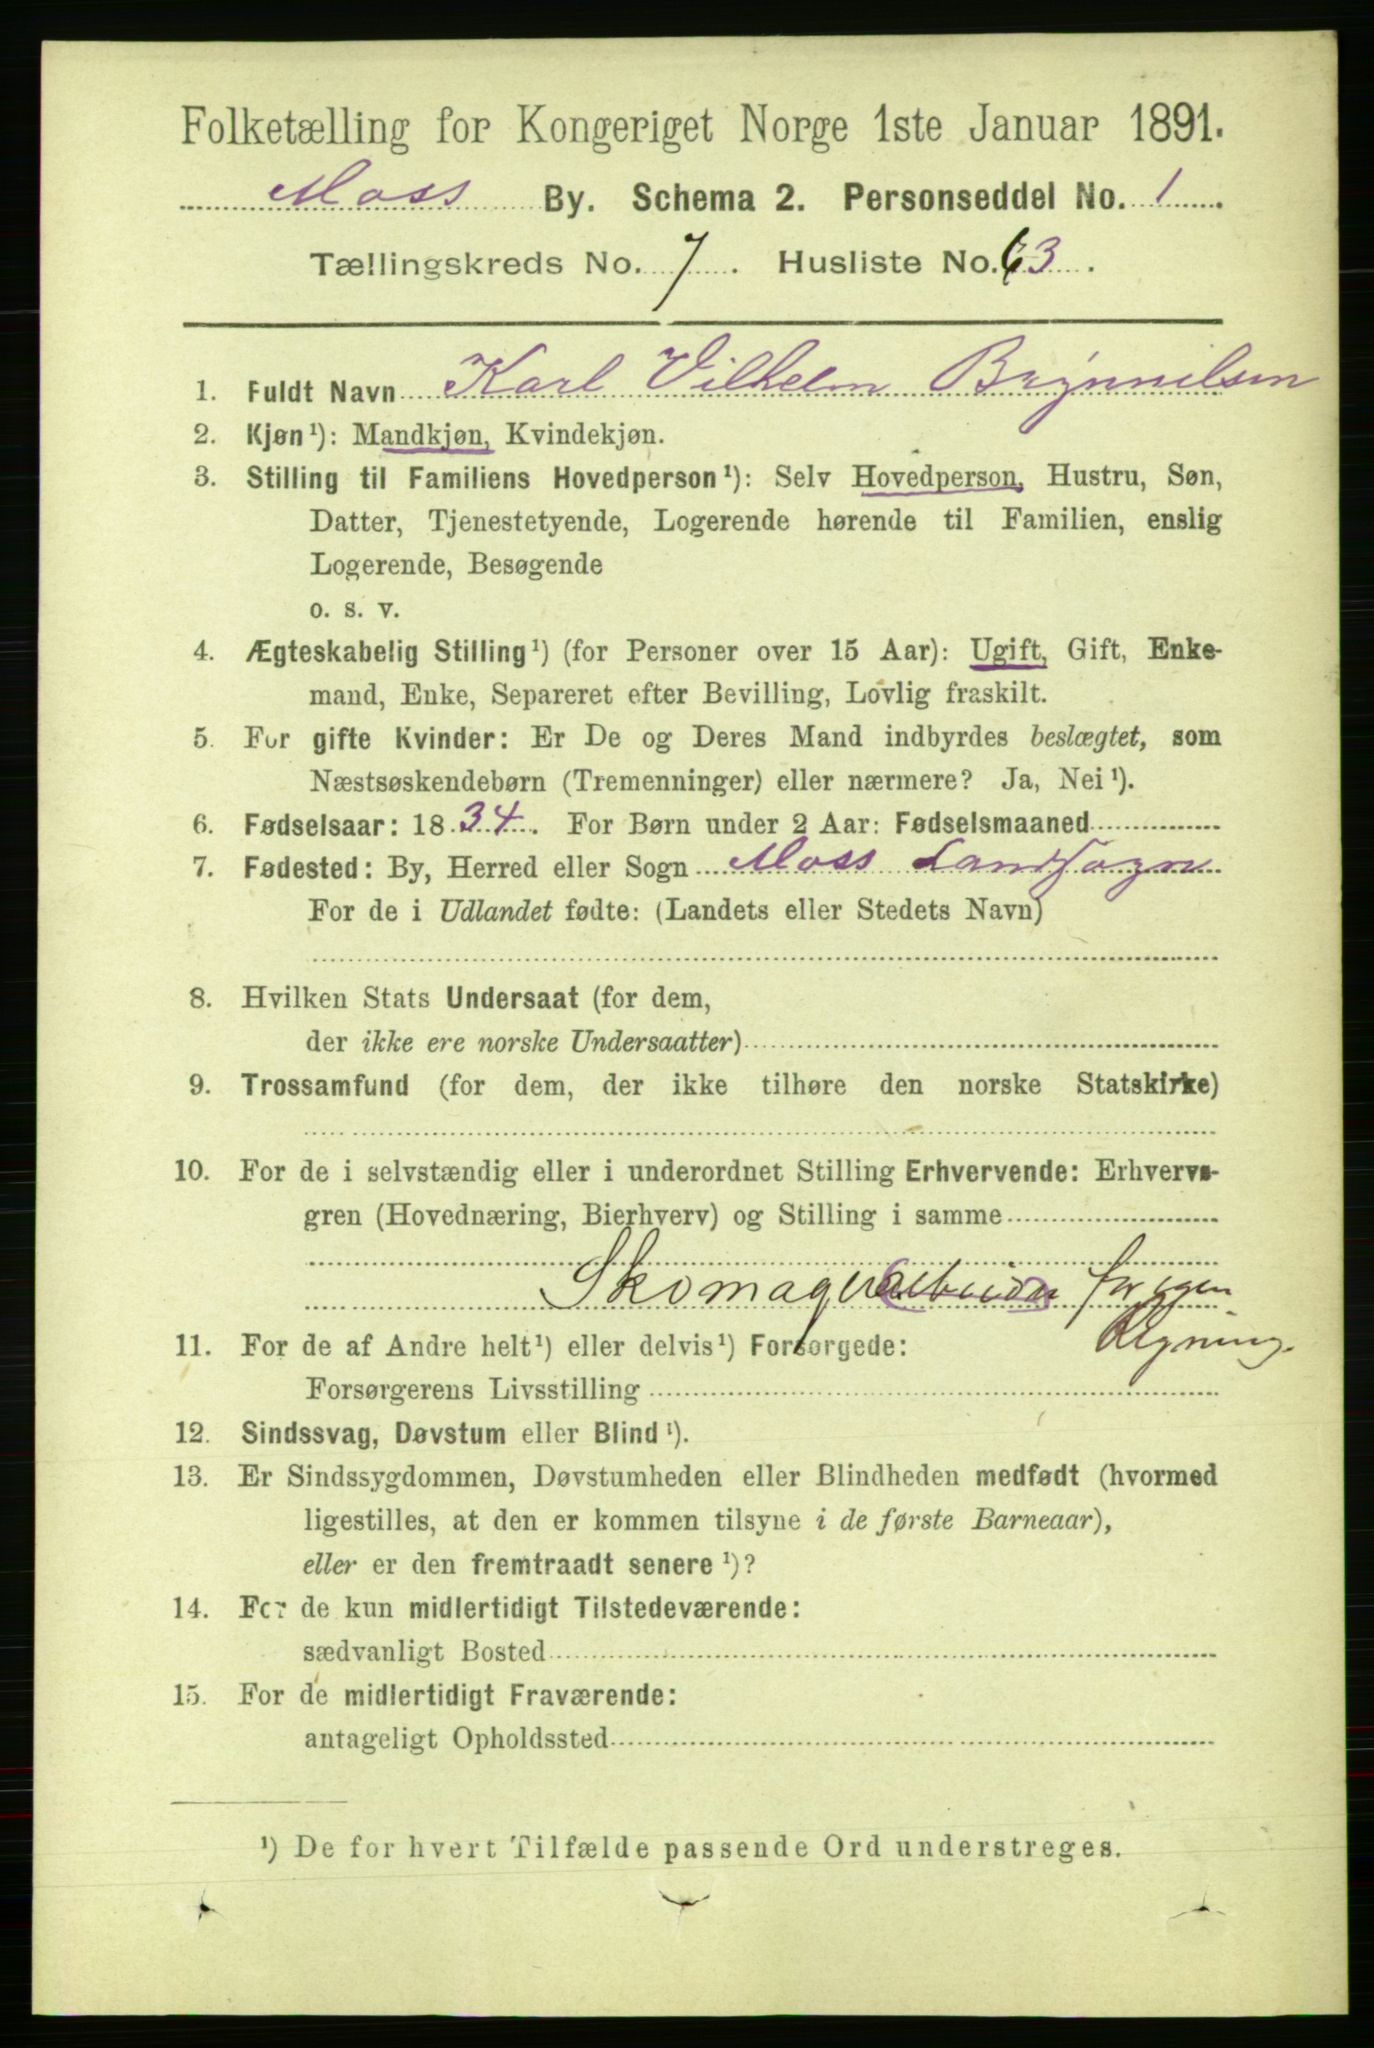 Folketælling for Kongeriget Norge 1ste Januar 1891.
Moss By. Schema 2. Personseddel No. 1.
Tællingskreds No. 7. Husliste No. 63.
1. Fuldt Navn Karl Vilhelm Brynnilsen
2. Kjøn¹): Mandkjøn, Kvindekjøn.
3. Stilling til Familiens Hovedperson¹): Selv Hovedperson, Hustru, Søn,
Datter, Tjenestetyende, Logerende hørende til Familien, enslig
Logerende, Besøgende
o. s. v.
4. Ægteskabelig Stilling¹) (for Personer over 15 Aar): Ugift, Gift, Enke-
mand, Enke, Separeret efter Bevilling, Lovlig fraskilt.
5. For gifte Kvinder: Er De og Deres Mand indbyrdes beslægtet, som
Næstsøskendebørn (Tremenninger) eller nærmere? Ja, Nei¹).
6. Fødselsaar: 1834. For Børn under 2 Aar: Fødselsmaaned
7. Fødested: By, Herred eller Sogn Moss Landsogn
For de i Udlandet fødte: (Landets eller Stedets Navn)
8. Hvilken Stats Undersaat (for dem,
der ikke ere norske Undersaatter)
9. Trossamfund (for dem, der ikke tilhøre den norske Statskirke)
10. For de i selvstændig eller i underordnet Stilling Erhvervende: Erhvervs-
gren (Hovednæring, Bierhverv) og Stilling i samme
Skomagerarbeider for egen
Regning.
11. For de af Andre helt¹) eller delvis¹) Forsørgede:
Forsørgerens Livsstilling
12. Sindssvag, Døvstum eller Blind¹).
13. Er Sindssygdommen, Døvstumheden eller Blindheden medfødt (hvormed
ligestilles, at den er kommen tilsyne i de første Barneaar),
eller er den fremtraadt senere¹)?
14. For de kun midlertidigt Tilstedeværende:
sædvanligt Bosted
15. For de midlertidigt Fraværende:
antageligt Opholdssted
¹) De for hvert Tilfælde passende Ord understreges.